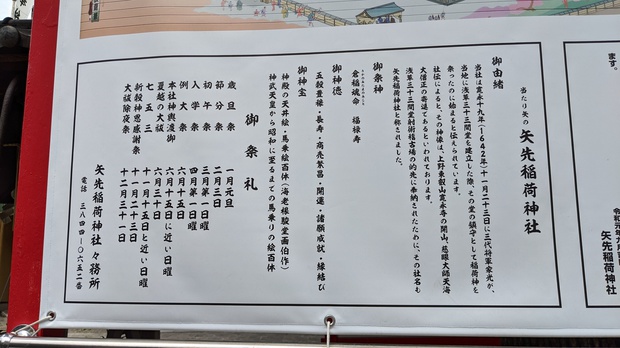 当たり矢の 矢先稲荷神社
御由緒
当社は寛永十九年(1642年)十一月二十三日に三代将軍家光が、
当地に浅草三十三間堂を建立した際、その堂の鎮守として稲荷神を
奉ったのに始まると伝えられています。
社伝によると、その神像は、上野東叡山寛永寺の開山、慈眼大師天海
大僧正の寄進であるといわれております。
浅草三十三間堂射術稽古場の的先に奉納されたために、その社名も
矢先稲荷神社と称されました。
御祭神
倉稲魂命 福禄寿
御神徳
五穀豊穣・長寿・商売繁昌・開運・諸願成就・縁結び
御神宝
神殿の天井絵・馬乗絵百体(海老根駿堂画伯作)
神武天皇から昭和に至るまでの馬乗りの絵百体
御祭礼
歳旦祭 一月元旦
節分祭 二月三日
初午祭 三月第一日曜
入学祭 四月第一日曜
例大祭 六月十五日
本社神輿渡御 六月十五日に近い日曜
夏越の大祓 六月三十日
七五三 十一月十五日と近い日曜
新穀神恩感謝祭 十一月二十三日
大祓除夜祭 十二月三十一日
矢先稲荷神社々務所
電話 三八四四-〇六五二番
ます。
矢先稲荷神社